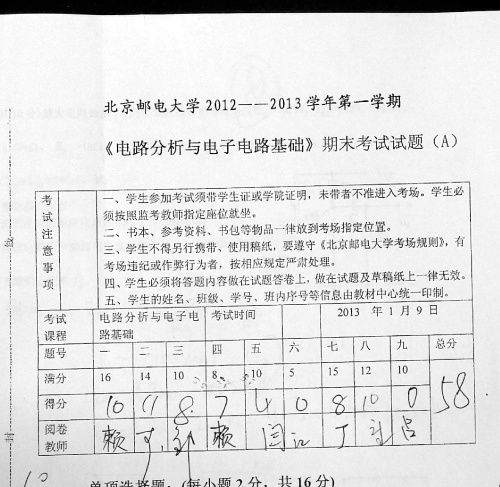 北京邮电大学2012——2013学年第一学期
《电路分析与电子电路基础》期末考试试题（A）
考试注意事项
一、学生参加考试须带学生证或学院证明，未带者不准进入考场。学生必
须按照监考教师指定座位就坐。
二、书本、参考资料、书包等物品一律放到考场指定位置。
三、学生不得另行携带、使用稿纸，要遵守《北京邮电大学考场规则》，有
考场违纪或作弊行为者，按相应规定严肃处理。
四、学生必须将答题内容做在试题答卷上，做在试题及草稿纸上一律无效。
五、学生的姓名、班级、学号、班内序号等信息由教材中心统一印制。
考试课程 电路分析与电子电路基础 考试时间 2013 年 1 月 9 日
题号 一 二 三 四 五 六 七 八 九 总分
满分 16 14 10 8 10 5 15 12 10
得分 10 11 8 7 4 0 8 10 0 58
阅卷教师 赖 赖 丁
10
单项选择题：(每小题2分，共16分)